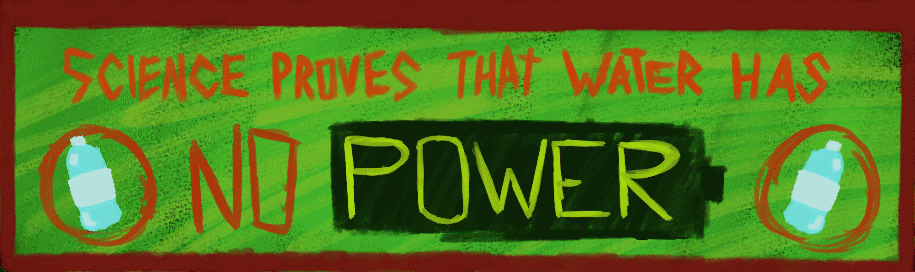 SCIENCE PROVES THAT WATER HAS
NO POWER